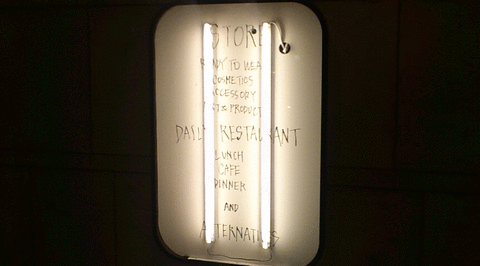 STORE
READY TO WEAR
COSMETICS
ACCESSORY
PRODUCT
DAILY RESTAURANT
LUNCH
CAFE
DINNER
AND